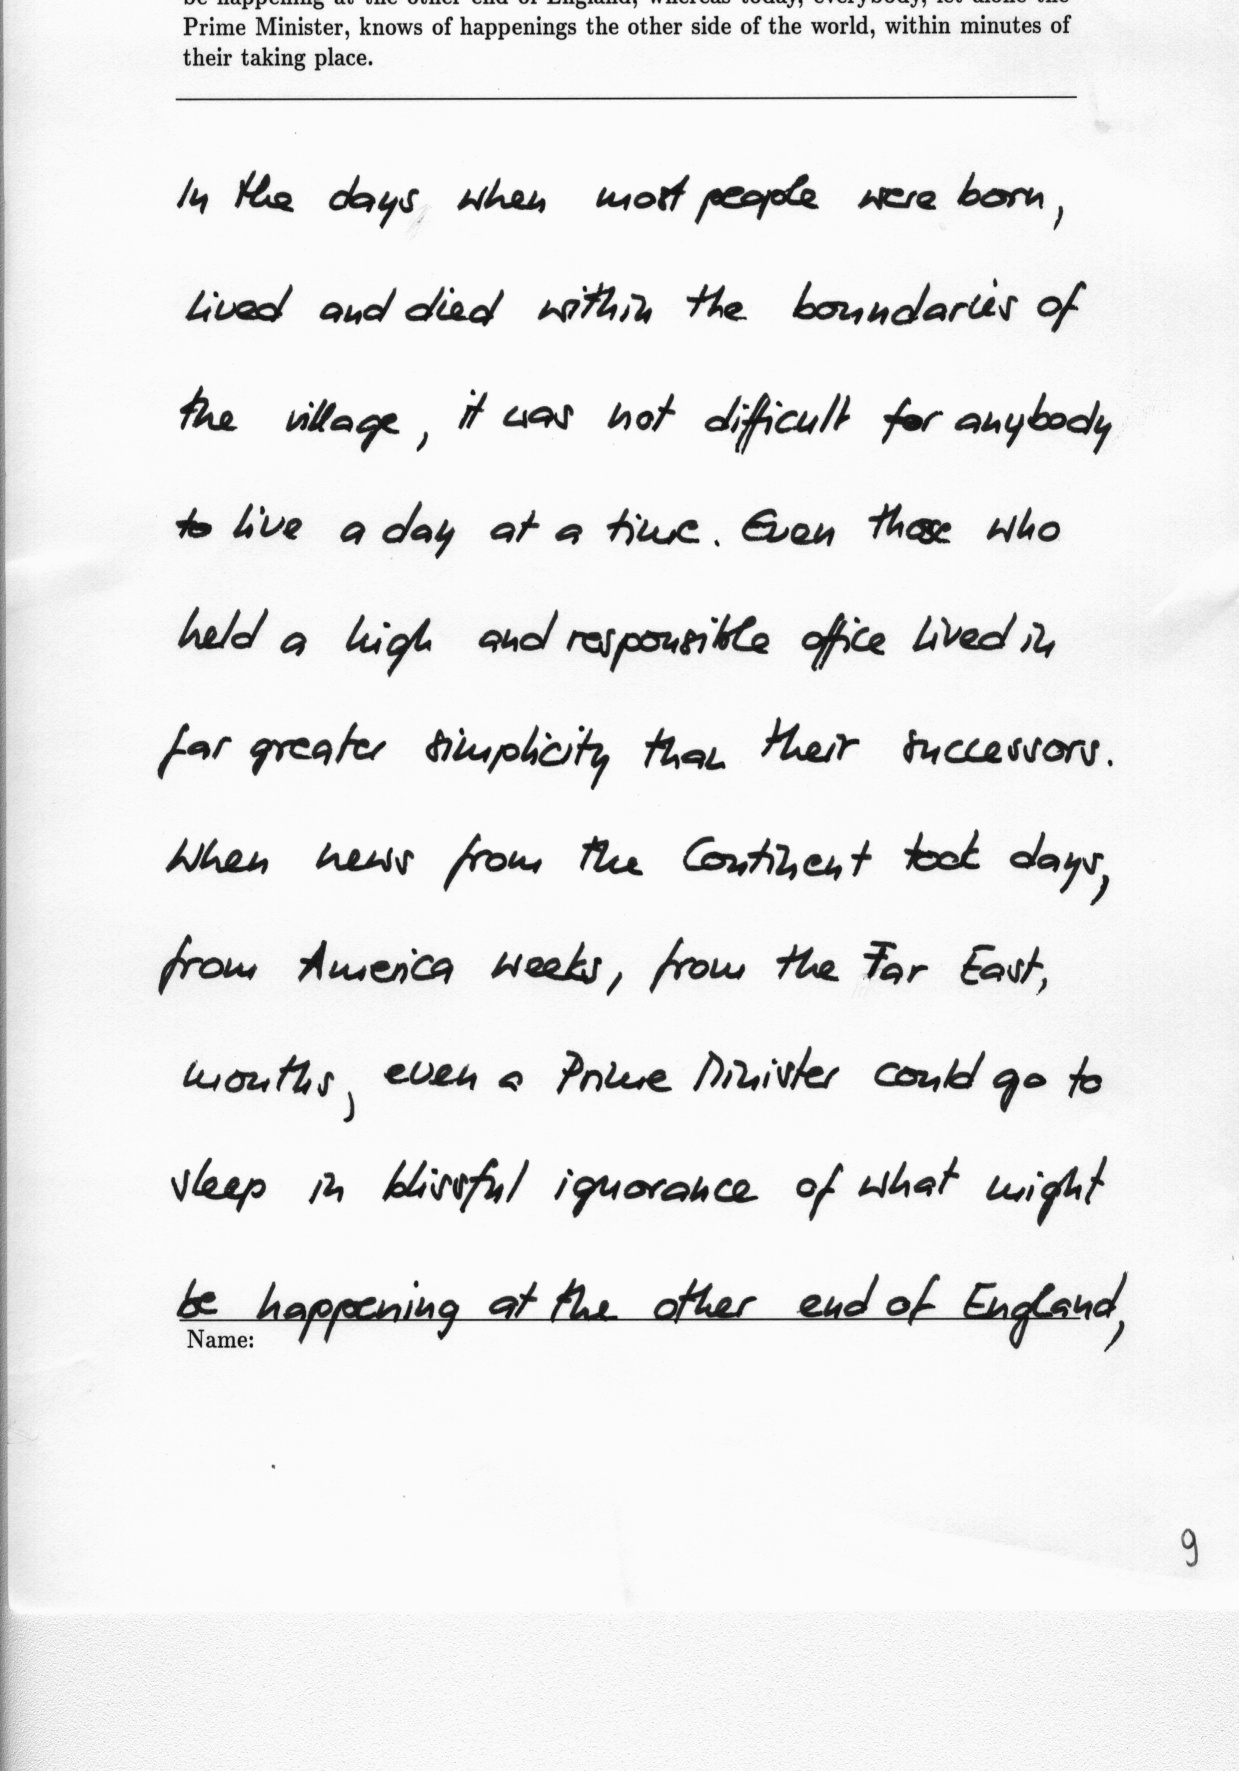 be happening at the other end of England, whereas today, everybody, let alone the
Prime Minister, knows of happenings the other side of the world, within minutes of
their taking place.
In the days when most people were born,
lived and died within the boundaries of
the village, it was not difficult for anybody
to live a day at a time. Even those who
held a high and responsible office lived in
far greater simplicity than their successors.
When news from the Continent took days,
from America weeks, from the Far East,
months, even a Prime Minister could go to
sleep in blissful ignorance of what might
be happening at the other end of England,
Name:
9